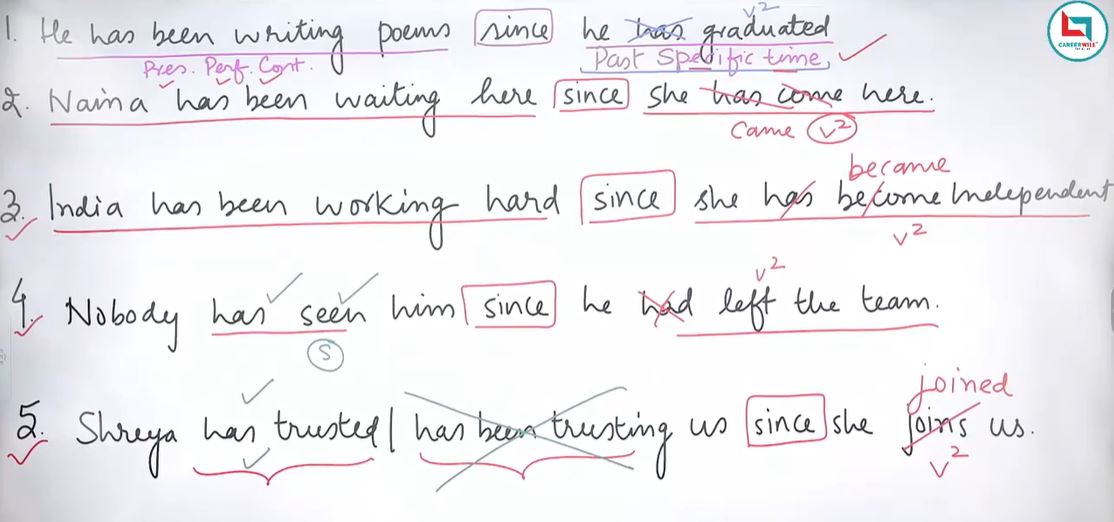 1. He has been writing poems since he has graduated
v2
Pres. Perf. Cont.
Past Specific time,
2. Naina has been waiting here since she has come here.
Came v2
became
3. India has been working hard since she has become Independent
v2
v2
4. Nobody has seen him since he had left the team.
S
joined
5. Shreya has trusted | has been trusting us since she joins us.
v2
CAREERWILL